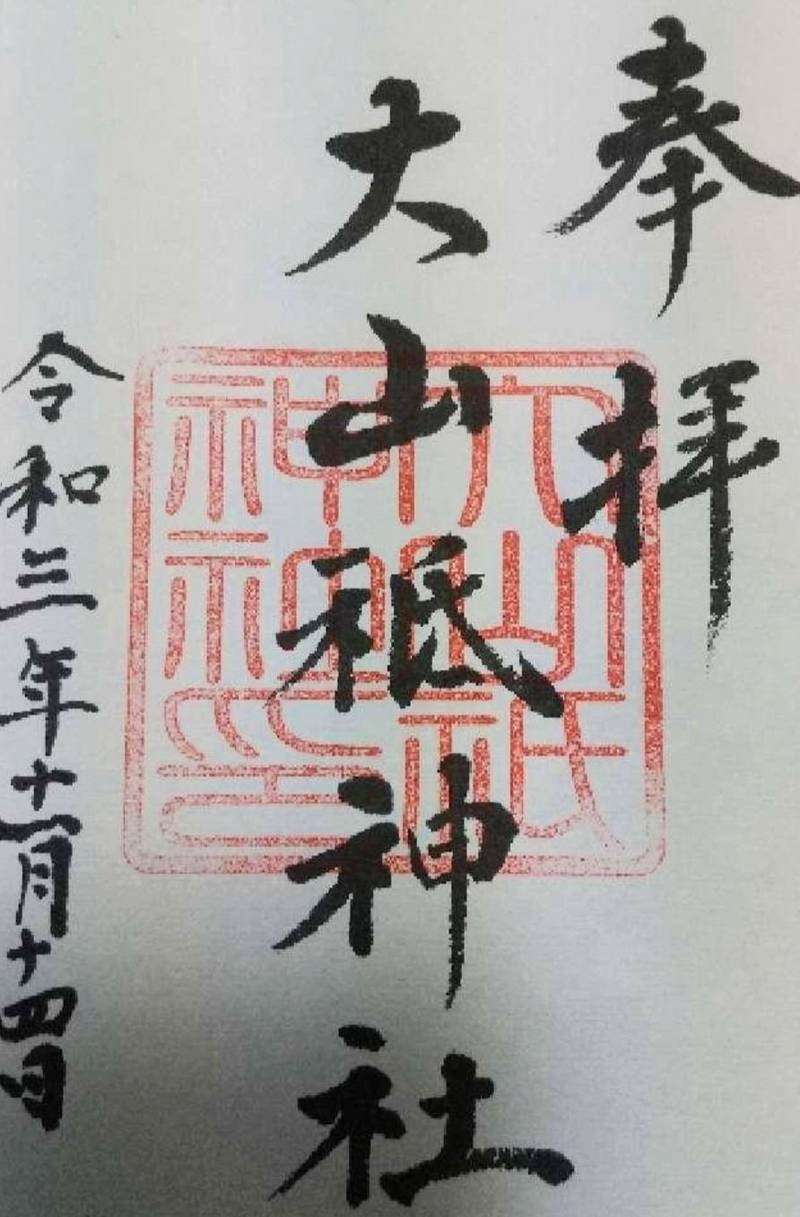 奉拝
大山祗神社
大山祗神社神璽印
令和三年十一月十四日